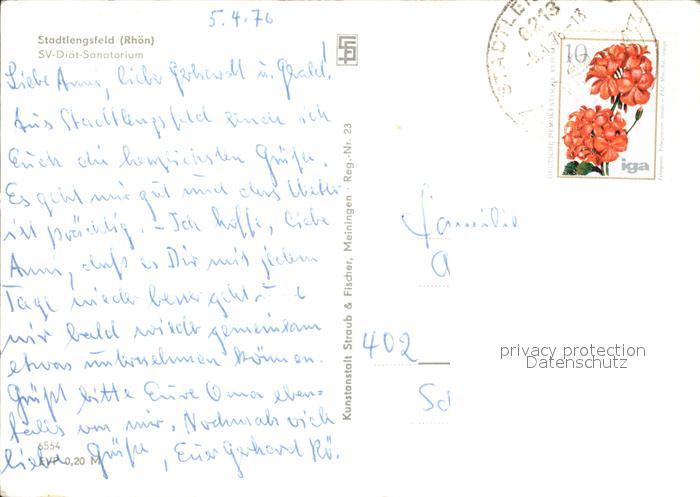 5.4.76
Stadtlengsfeld (Rhön)
SV-Diät-Sanatorium
Liebe Anni, lieber Gerhardt u. Gerald!
Aus Stadtlengsfeld sende ich
Euch die herzlichsten Grüße.
Es geht mir gut und das Wetter
ist prächtig. - Ich hoffe, liebe
Anni, daß es Dir mit jedem
Tage wieder besser geht u.
wir bald wieder gemeinsam
etwas unternehmen können.
Grüßt bitte Eure Oma eben=
falls von mir. Nochmals viele
liebe Grüße, Euer Gerhard Rö.
6554
EVP 0,20 M
Kunstanstalt Straub & Fischer, Meiningen · Reg.-Nr. 23
STADTLEN
6213
10
DEUTSCHE DEMOKRATISCHE REPUBLIK
iga
Familie
402
privacy protection
Datenschutz